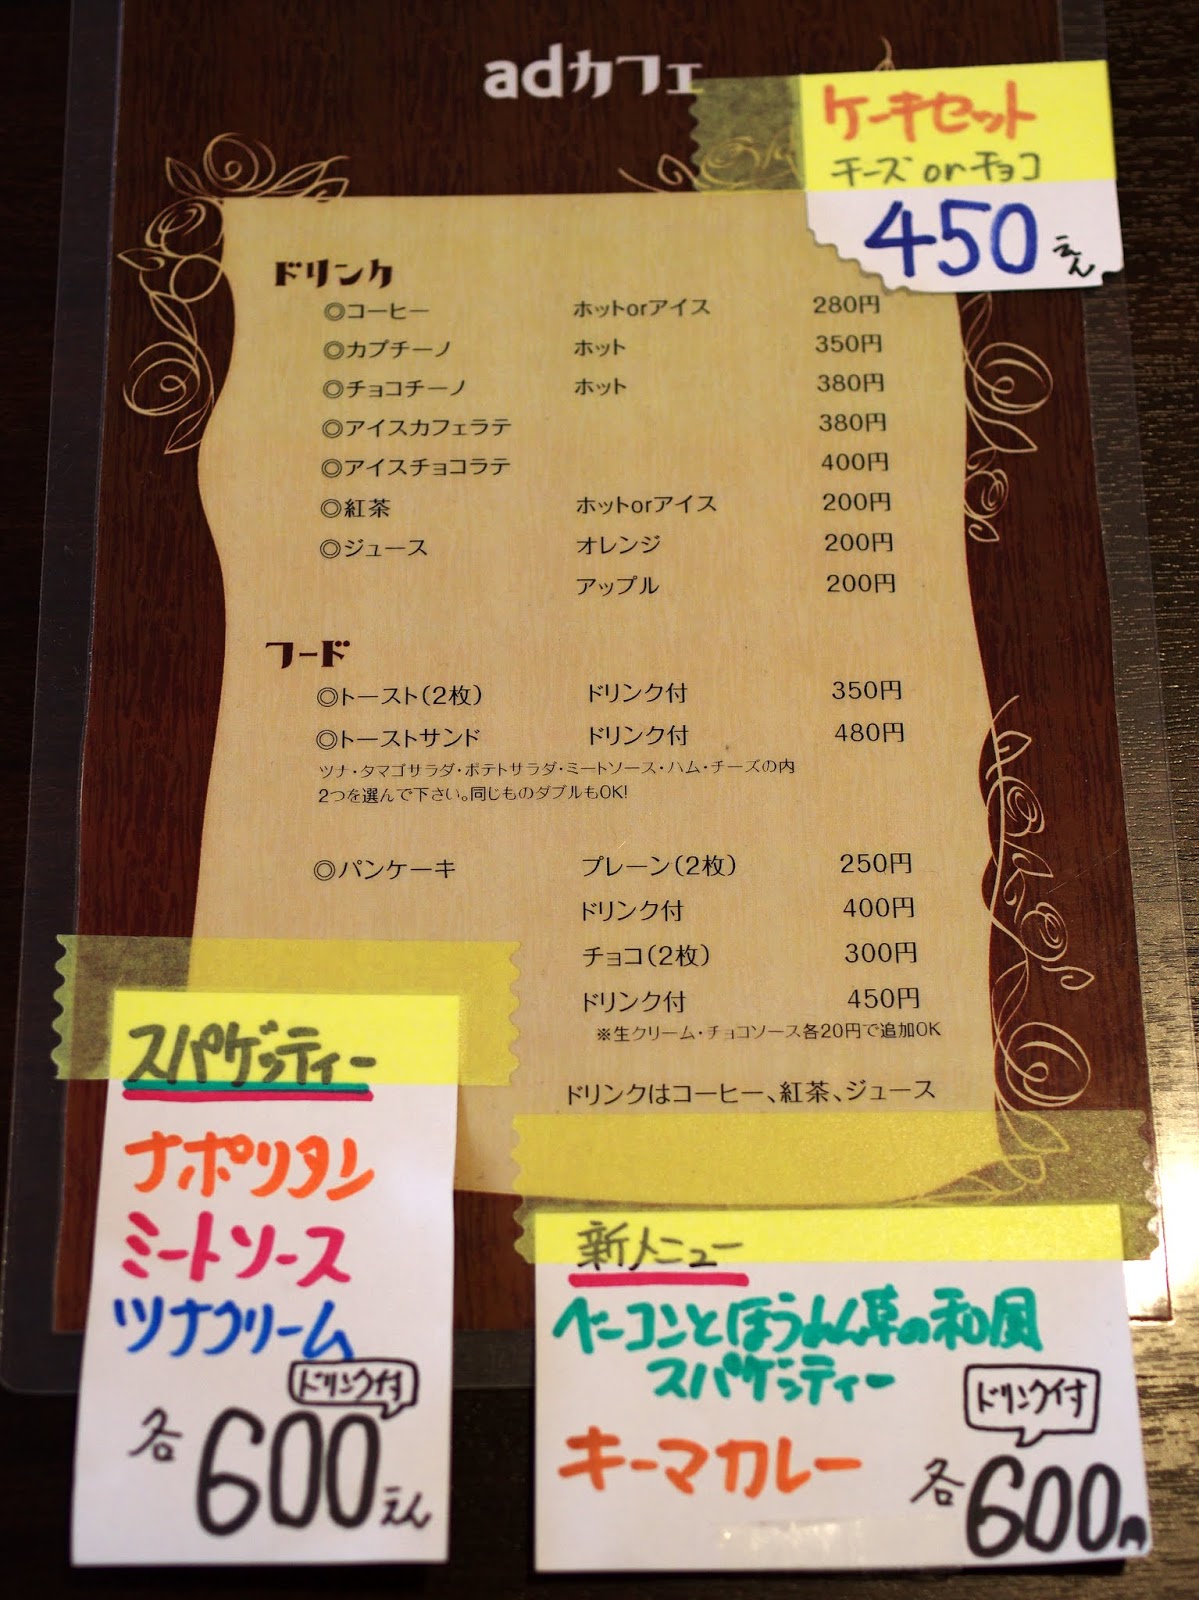 adカフェ
ケーキセット
チーズ or チョコ
450えん
ドリンク
◎コーヒー ホットorアイス 280円
◎カプチーノ ホット 350円
◎チョコチーノ ホット 380円
◎アイスカフェラテ 380円
◎アイスチョコラテ 400円
◎紅茶 ホットorアイス 200円
◎ジュース オレンジ 200円
アップル 200円
フード
◎トースト(2枚) ドリンク付 350円
◎トーストサンド ドリンク付 480円
ツナ・タマゴサラダ・ポテトサラダ・ミートソース・ハム・チーズの内
2つを選んで下さい。同じものダブルもOK!
◎パンケーキ プレーン(2枚) 250円
ドリンク付 400円
チョコ(2枚) 300円
ドリンク付 450円
※生クリーム・チョコソース各20円で追加OK
ドリンクはコーヒー、紅茶、ジュース
スパゲッティー
ナポリタン
ミートソース
ツナクリーム
ドリンク付
各600えん
新メニュー
ベーコンとほうれん草の和風
スパゲッティー
キーマカレー
ドリンク付
各600円